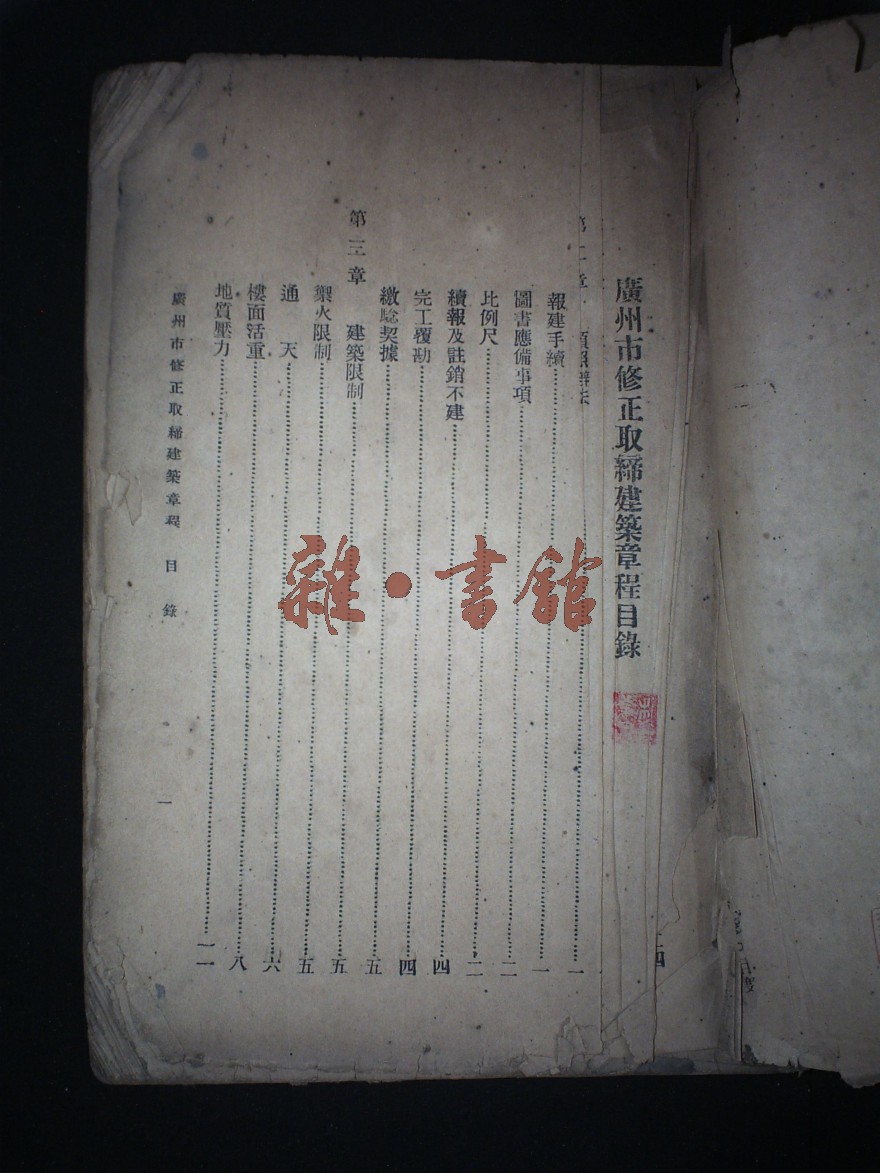 廣州市修正取締建築章程目錄
章
報建手續……一
圖書應備事項……二
比例尺……二
續報及註銷不建……四
完工覆勘……四
繳驗契據……五
第三章 建築限制……五
禦火限制……五
通天……六
樓面活重……八
地質壓力……一一
廣州市修正取締建築章程 目錄 一
雜·書館